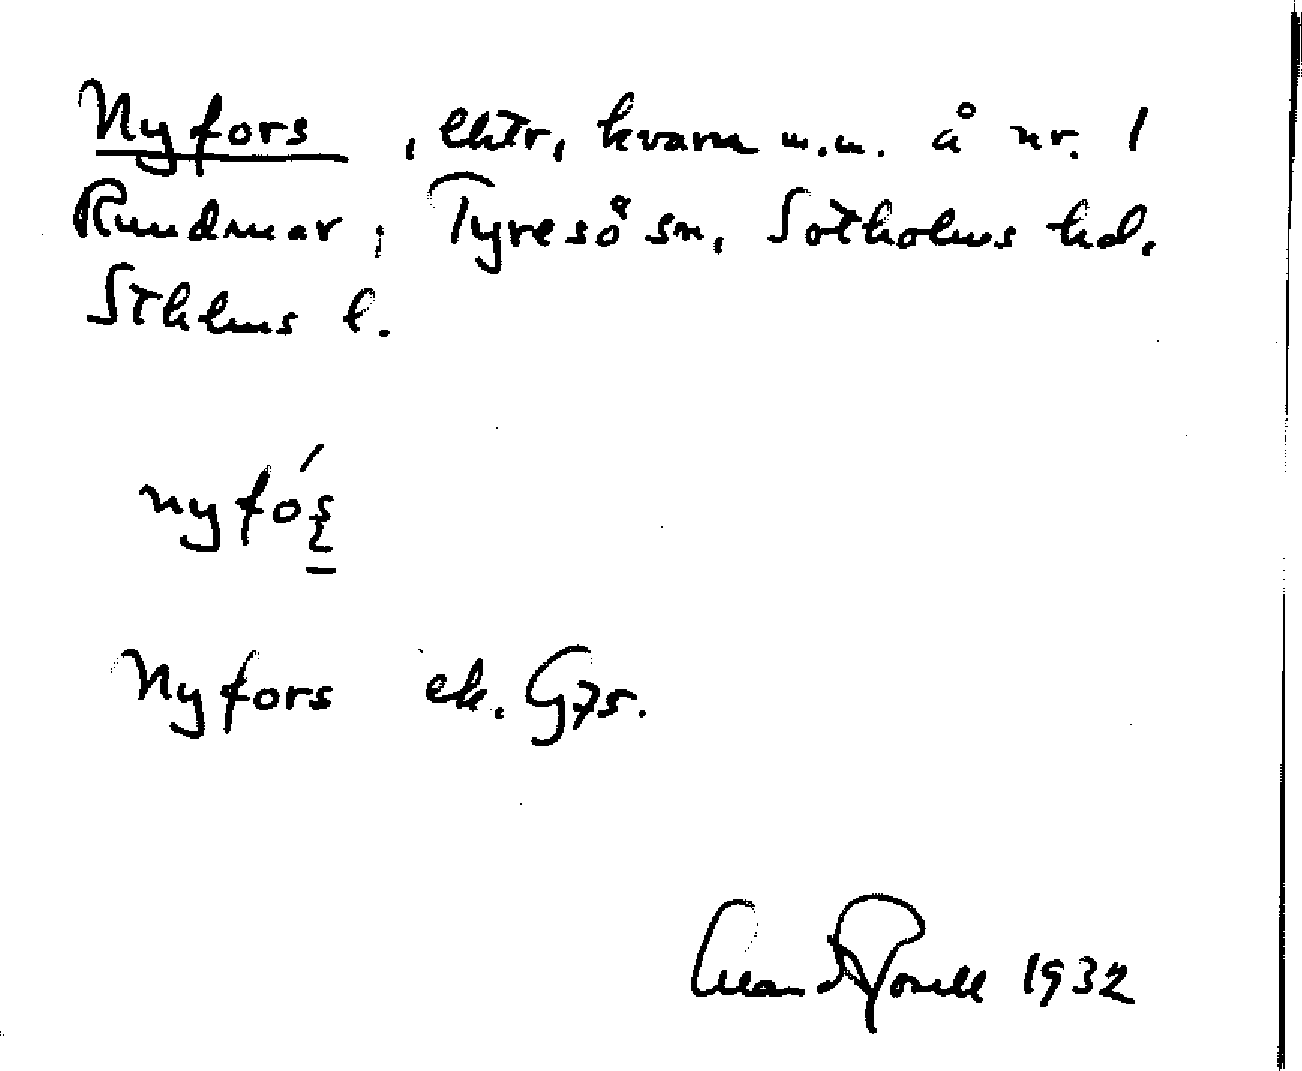 Nyfors, lhtr, kvarn m.m. å nr. 1
Rundmar, Tyresö sn, Sotholms hd.
Sthlms l.
nyfós
Nyfors ek. Gzs.
1932